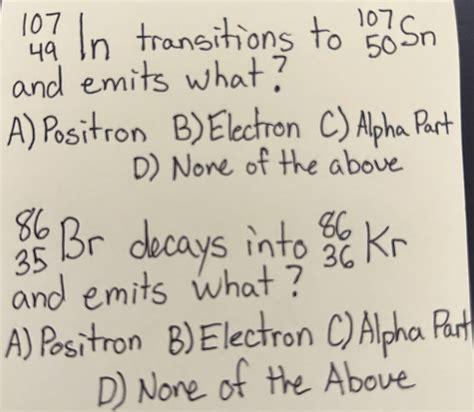 107 49 In transitions to 107 50 Sn
and emits what?
A) Positron B) Electron C) Alpha Part
D) None of the above
86 35 Br decays into 86 36 Kr
and emits what?
A) Positron B) Electron C) Alpha Part
D) None of the Above